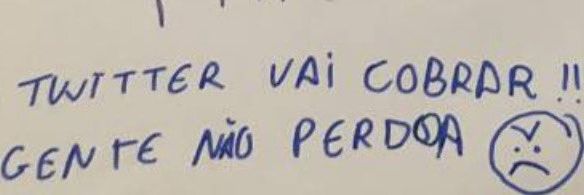 TWITTER VAI COBRAR !!
GENTE NÃO PERDOA